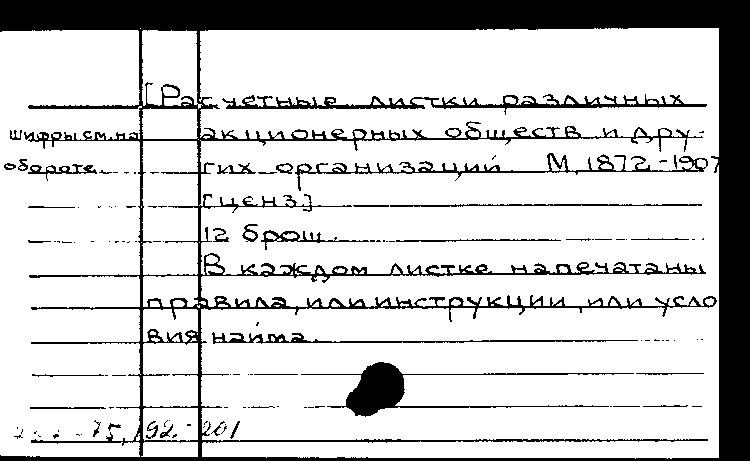 [Расчетные листки различных
Шифры см. на
акционерных обществ и дру-
обороте.
гих организаций. М, 1872-1907
[ценз]
12 брош.
В каждом листке напечатаны
правила, или инструкции, или усло
вия найма.
75, 192.-201